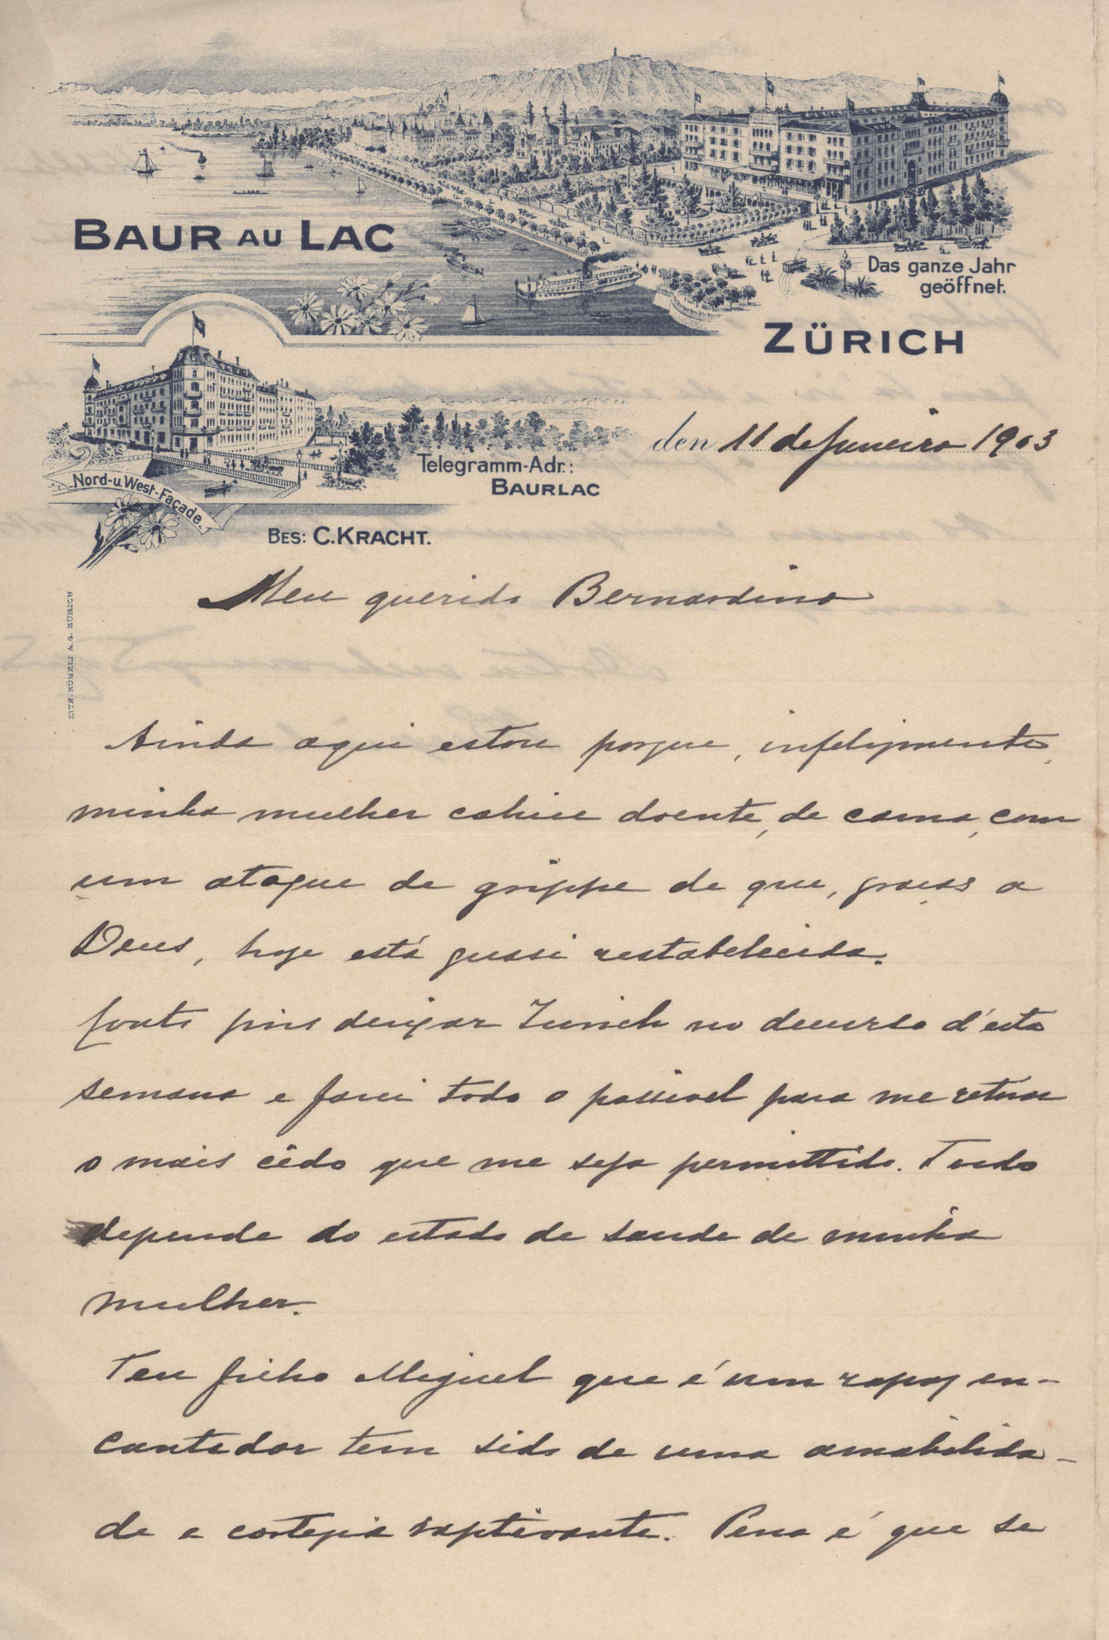 BAUR AU LAC
Das ganze Jahr
geöffnet.
ZÜRICH
Nord-u. West-Façade.
Telegramm-Adr.:
BAURLAC
den 11 de Janeiro 1903
BES: C. KRACHT.
Meu querido Bernardino
Ainda aqui estou porque, infelizmente,
minha mulher cahiu doente, de cama, com
um ataque de grippe de que, graças a
Deus, hoje está quasi restabelecida.
Conto pois deixar Zurich no decurso d'esta
semana e farei todo o possivel para me retirar
o mais cêdo que me seja permittido. Tudo
depende do estado de saude de minha
mulher.
Teu filho Miguel que é um rapaz en-
cantador tem sido de uma amabilida-
de e cortezia captivante. Pena é que se